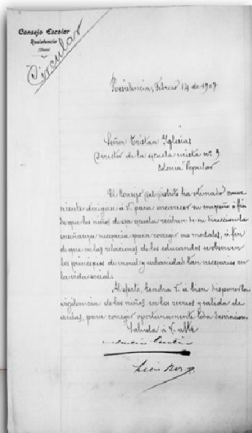 Consejo Escolar
Resistencia
(Chaco)
Circular
Resistencia, Febrero 14 de 1907
Señor Cristian Iglesias
Director de la escuela mixta nº 3
Colonia Popular
El Consejo del distrito ha estimado conve
niente dirigirse á V. para encarecer su empeño á fin
de que los niños de esa escuela reciban de su dirección la
enseñanza necesaria para corregir sus modales, á fin
de que en las relaciones de los educandos se observen
los principios de moral y urbanidad tan necesarios en
la vida social.
Al efecto, tendrá V. á bien disponer la
vigilancia de los niños en los recreos y salida de
aulas, para corregir oportunamente toda
Saluda á V. atte